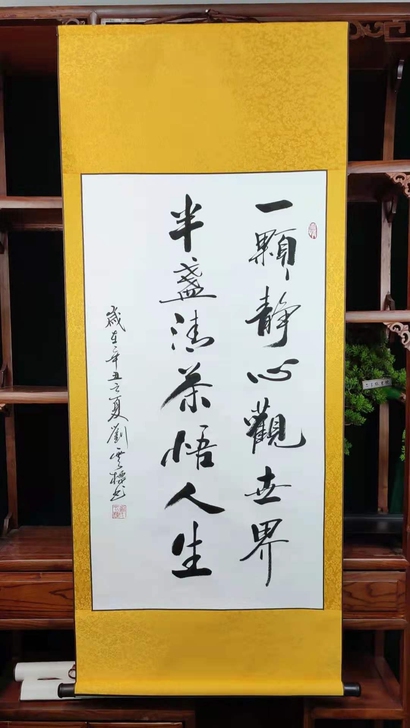 一顆静心觀世界
半盏清茶悟人生
歲在辛丑之夏劉雲樓书